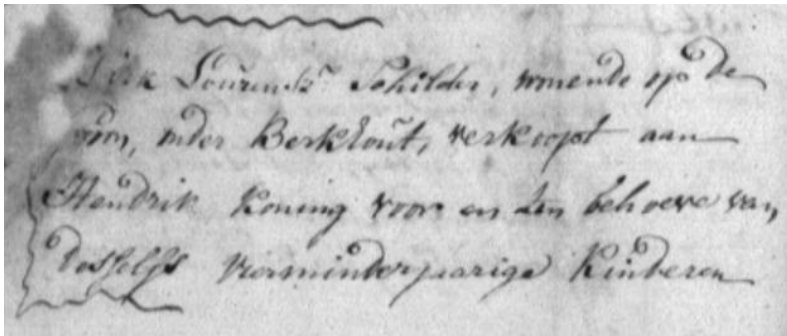 Dirk Lourensz Schilder, wonende op de
, onder Berkhout, verkoopt aan
Hendrik Koning voor en ten behoeve van
desselfs vier minderjaarige Kinderen